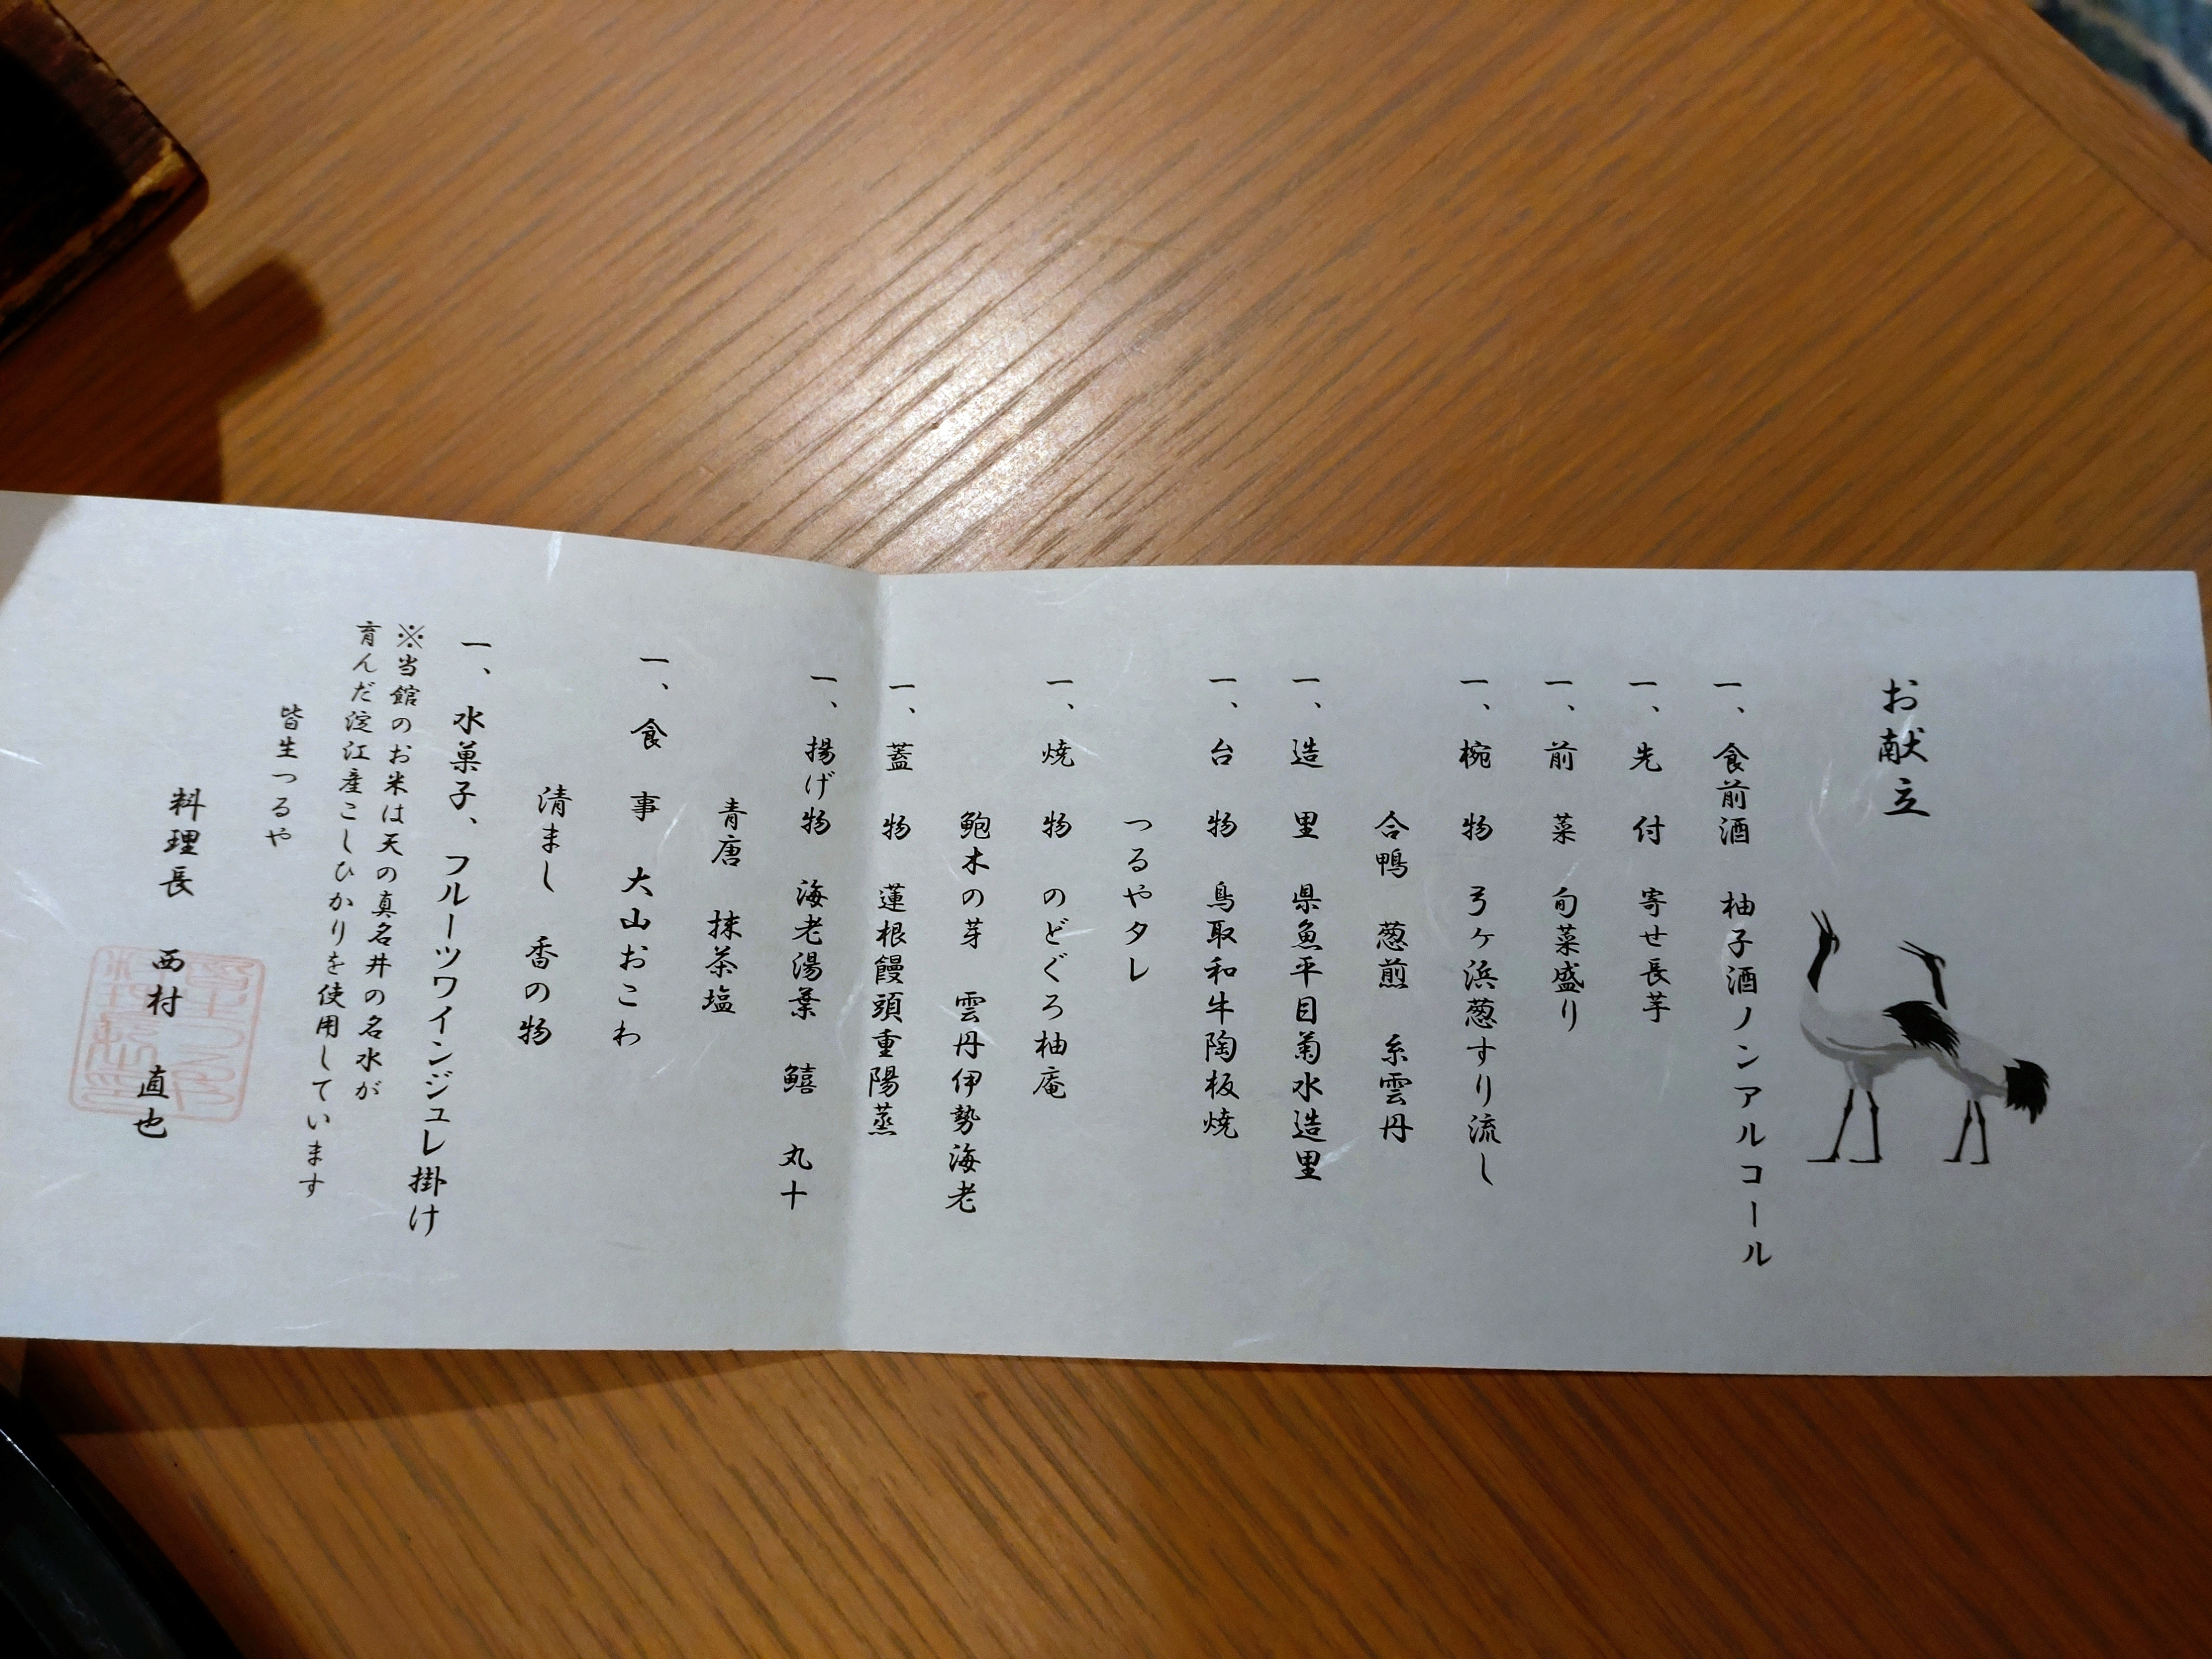 お献立
一、食前酒　柚子酒ノンアルコール
一、先　付　寄せ長芋
一、前　菜　旬菜盛り
一、椀　物　弓ヶ浜葱すり流し
合鴨　葱煎　糸雲丹
一、造　里　県魚平目菊水造里
一、台　物　鳥取和牛陶板焼
つるやタレ
一、焼　物　のどぐろ柚庵
鮑木の芽　雲丹伊勢海老
一、蓋　物　蓮根饅頭重陽蒸
一、揚げ物　海老湯葉　鱚　丸十
青唐　抹茶塩
一、食　事　大山おこわ
清まし　香の物
一、水菓子、フルーツワインジュレ掛け
※当館のお米は天の真名井の名水が
育んだ淀江産こしひかりを使用しています
皆生つるや
料理長　西村　直也